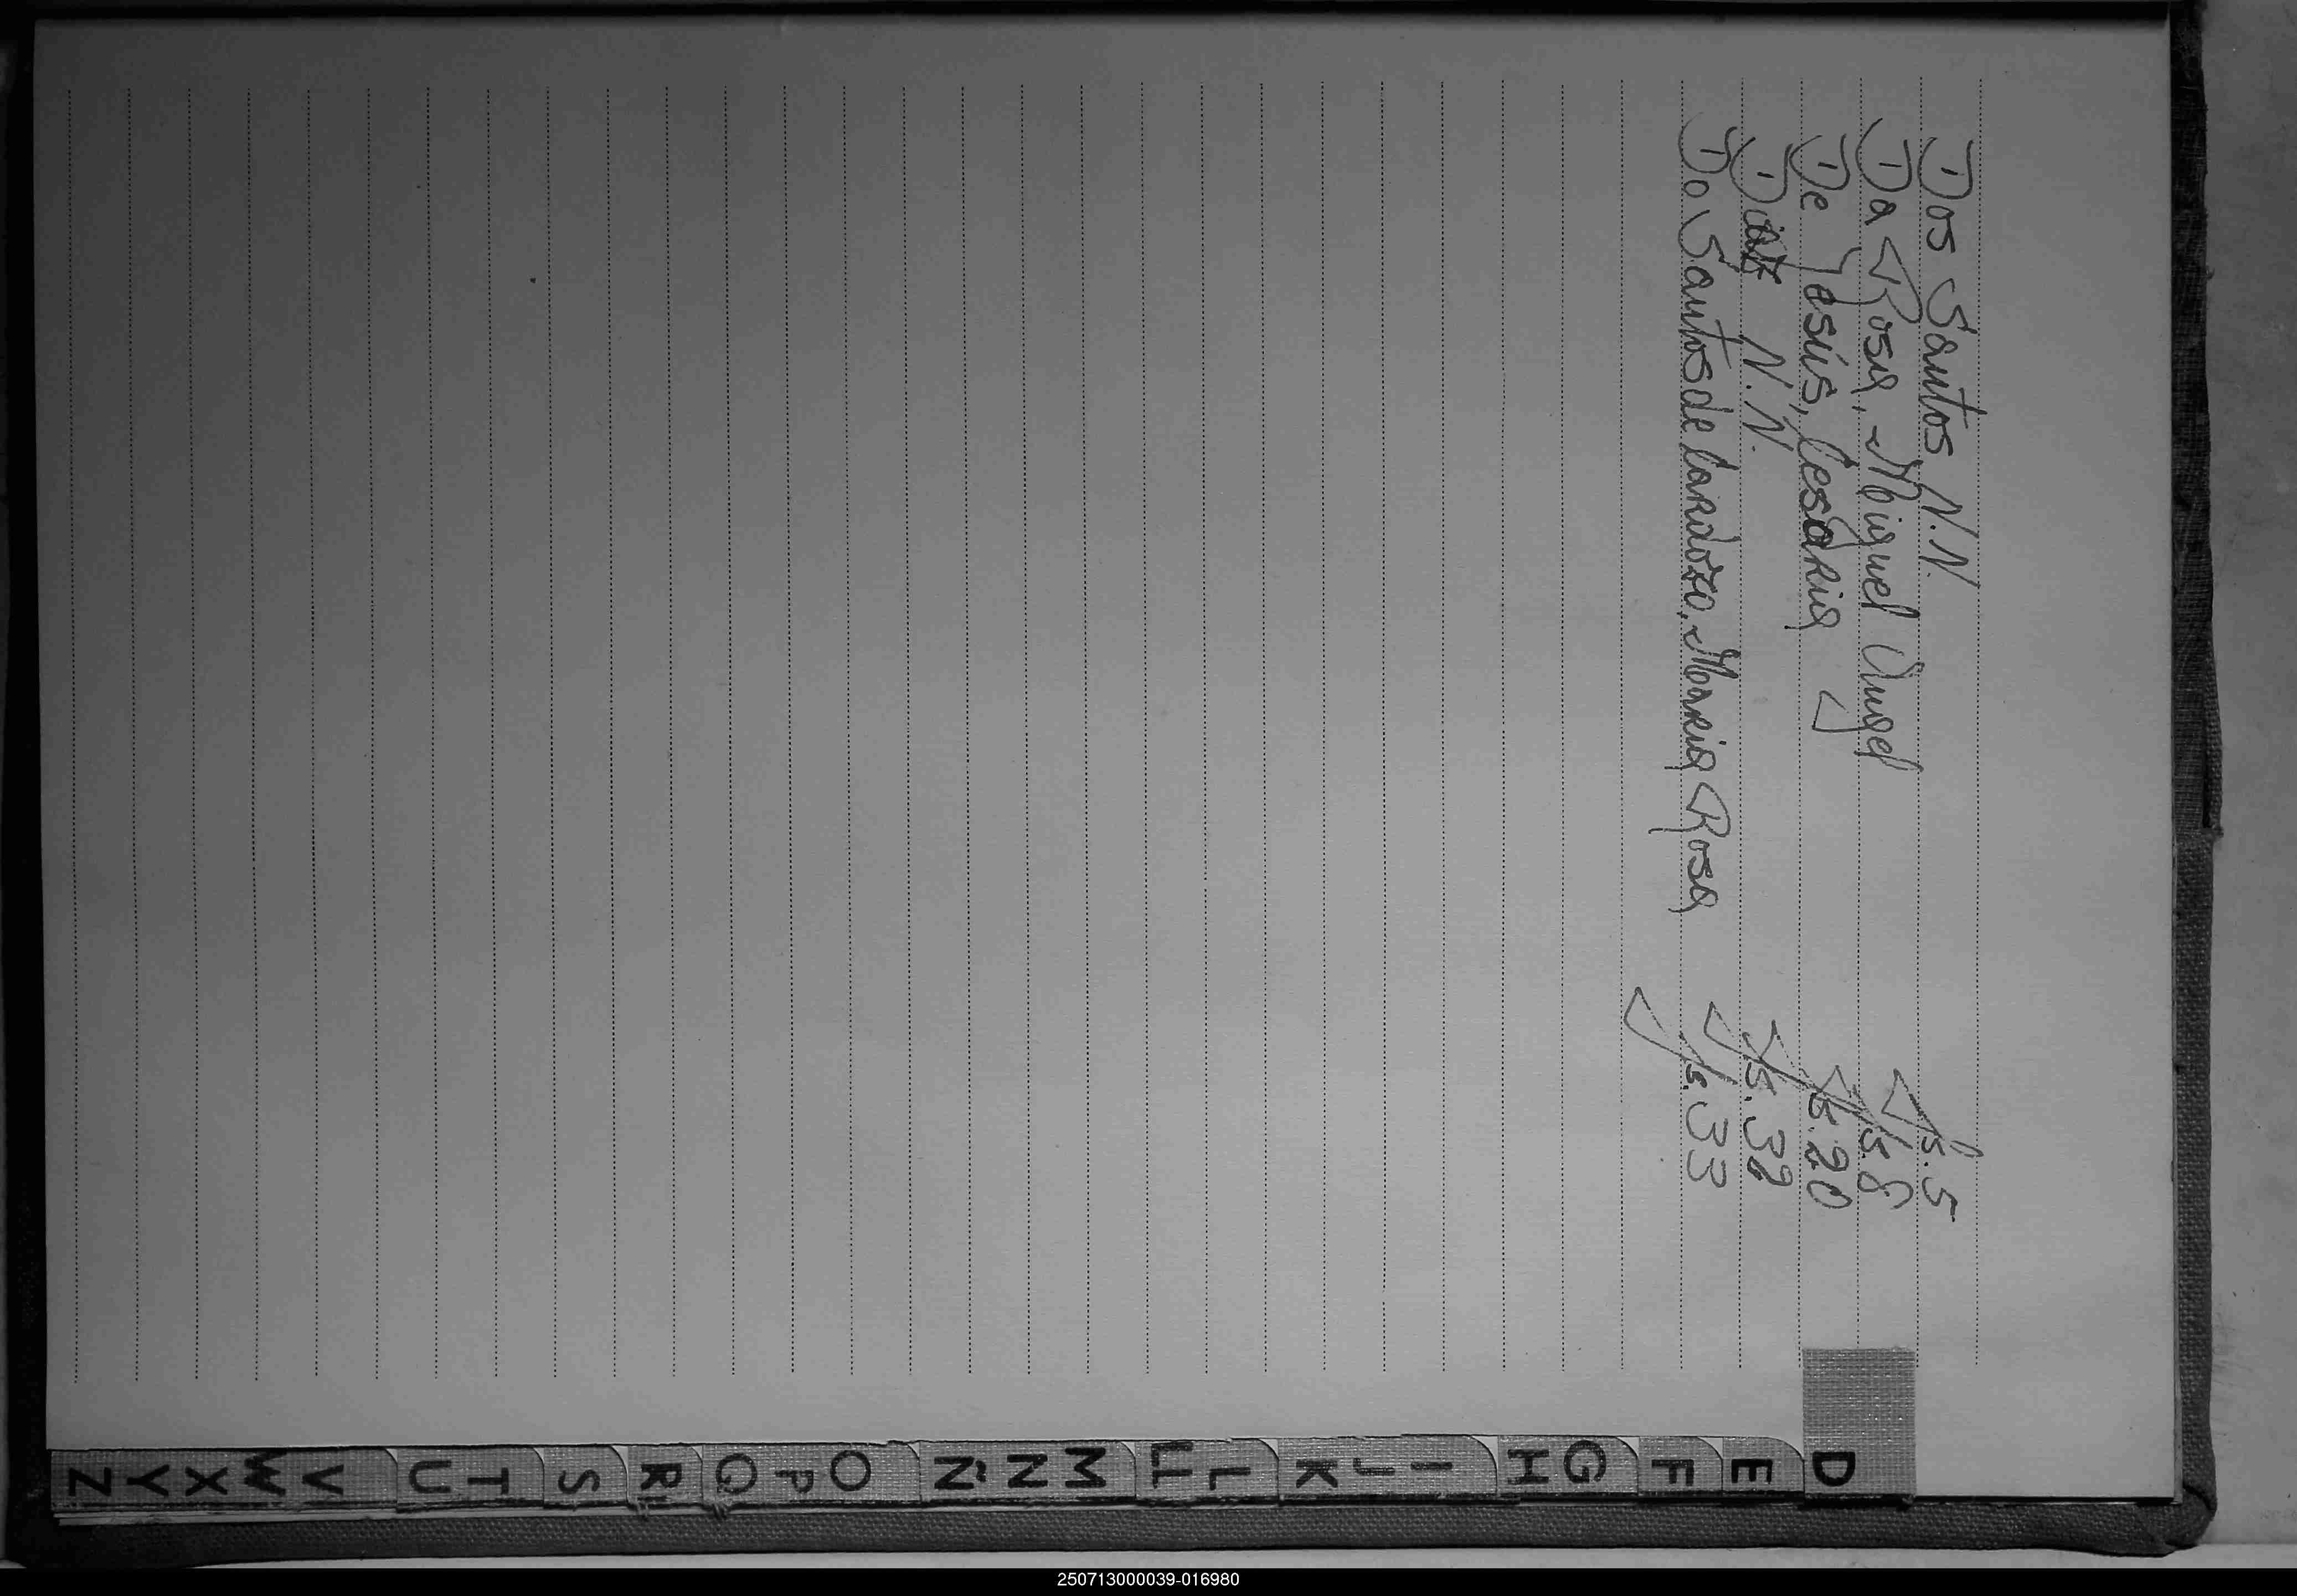 Dos Santos N.N. fs. 5
Da Rosa, Miguel Angel fs. 8
De Jesús, Cesaria fs. 20
Diaz N.N. fs. 32
Do Santos de Cardozo, Maria Rosa fs. 33
D
E
F
G
H
I
J
K
L
LL
M
N
Ñ
O
P
Q
R
S
T
U
V
W
X
Y
Z
250713000039-016980